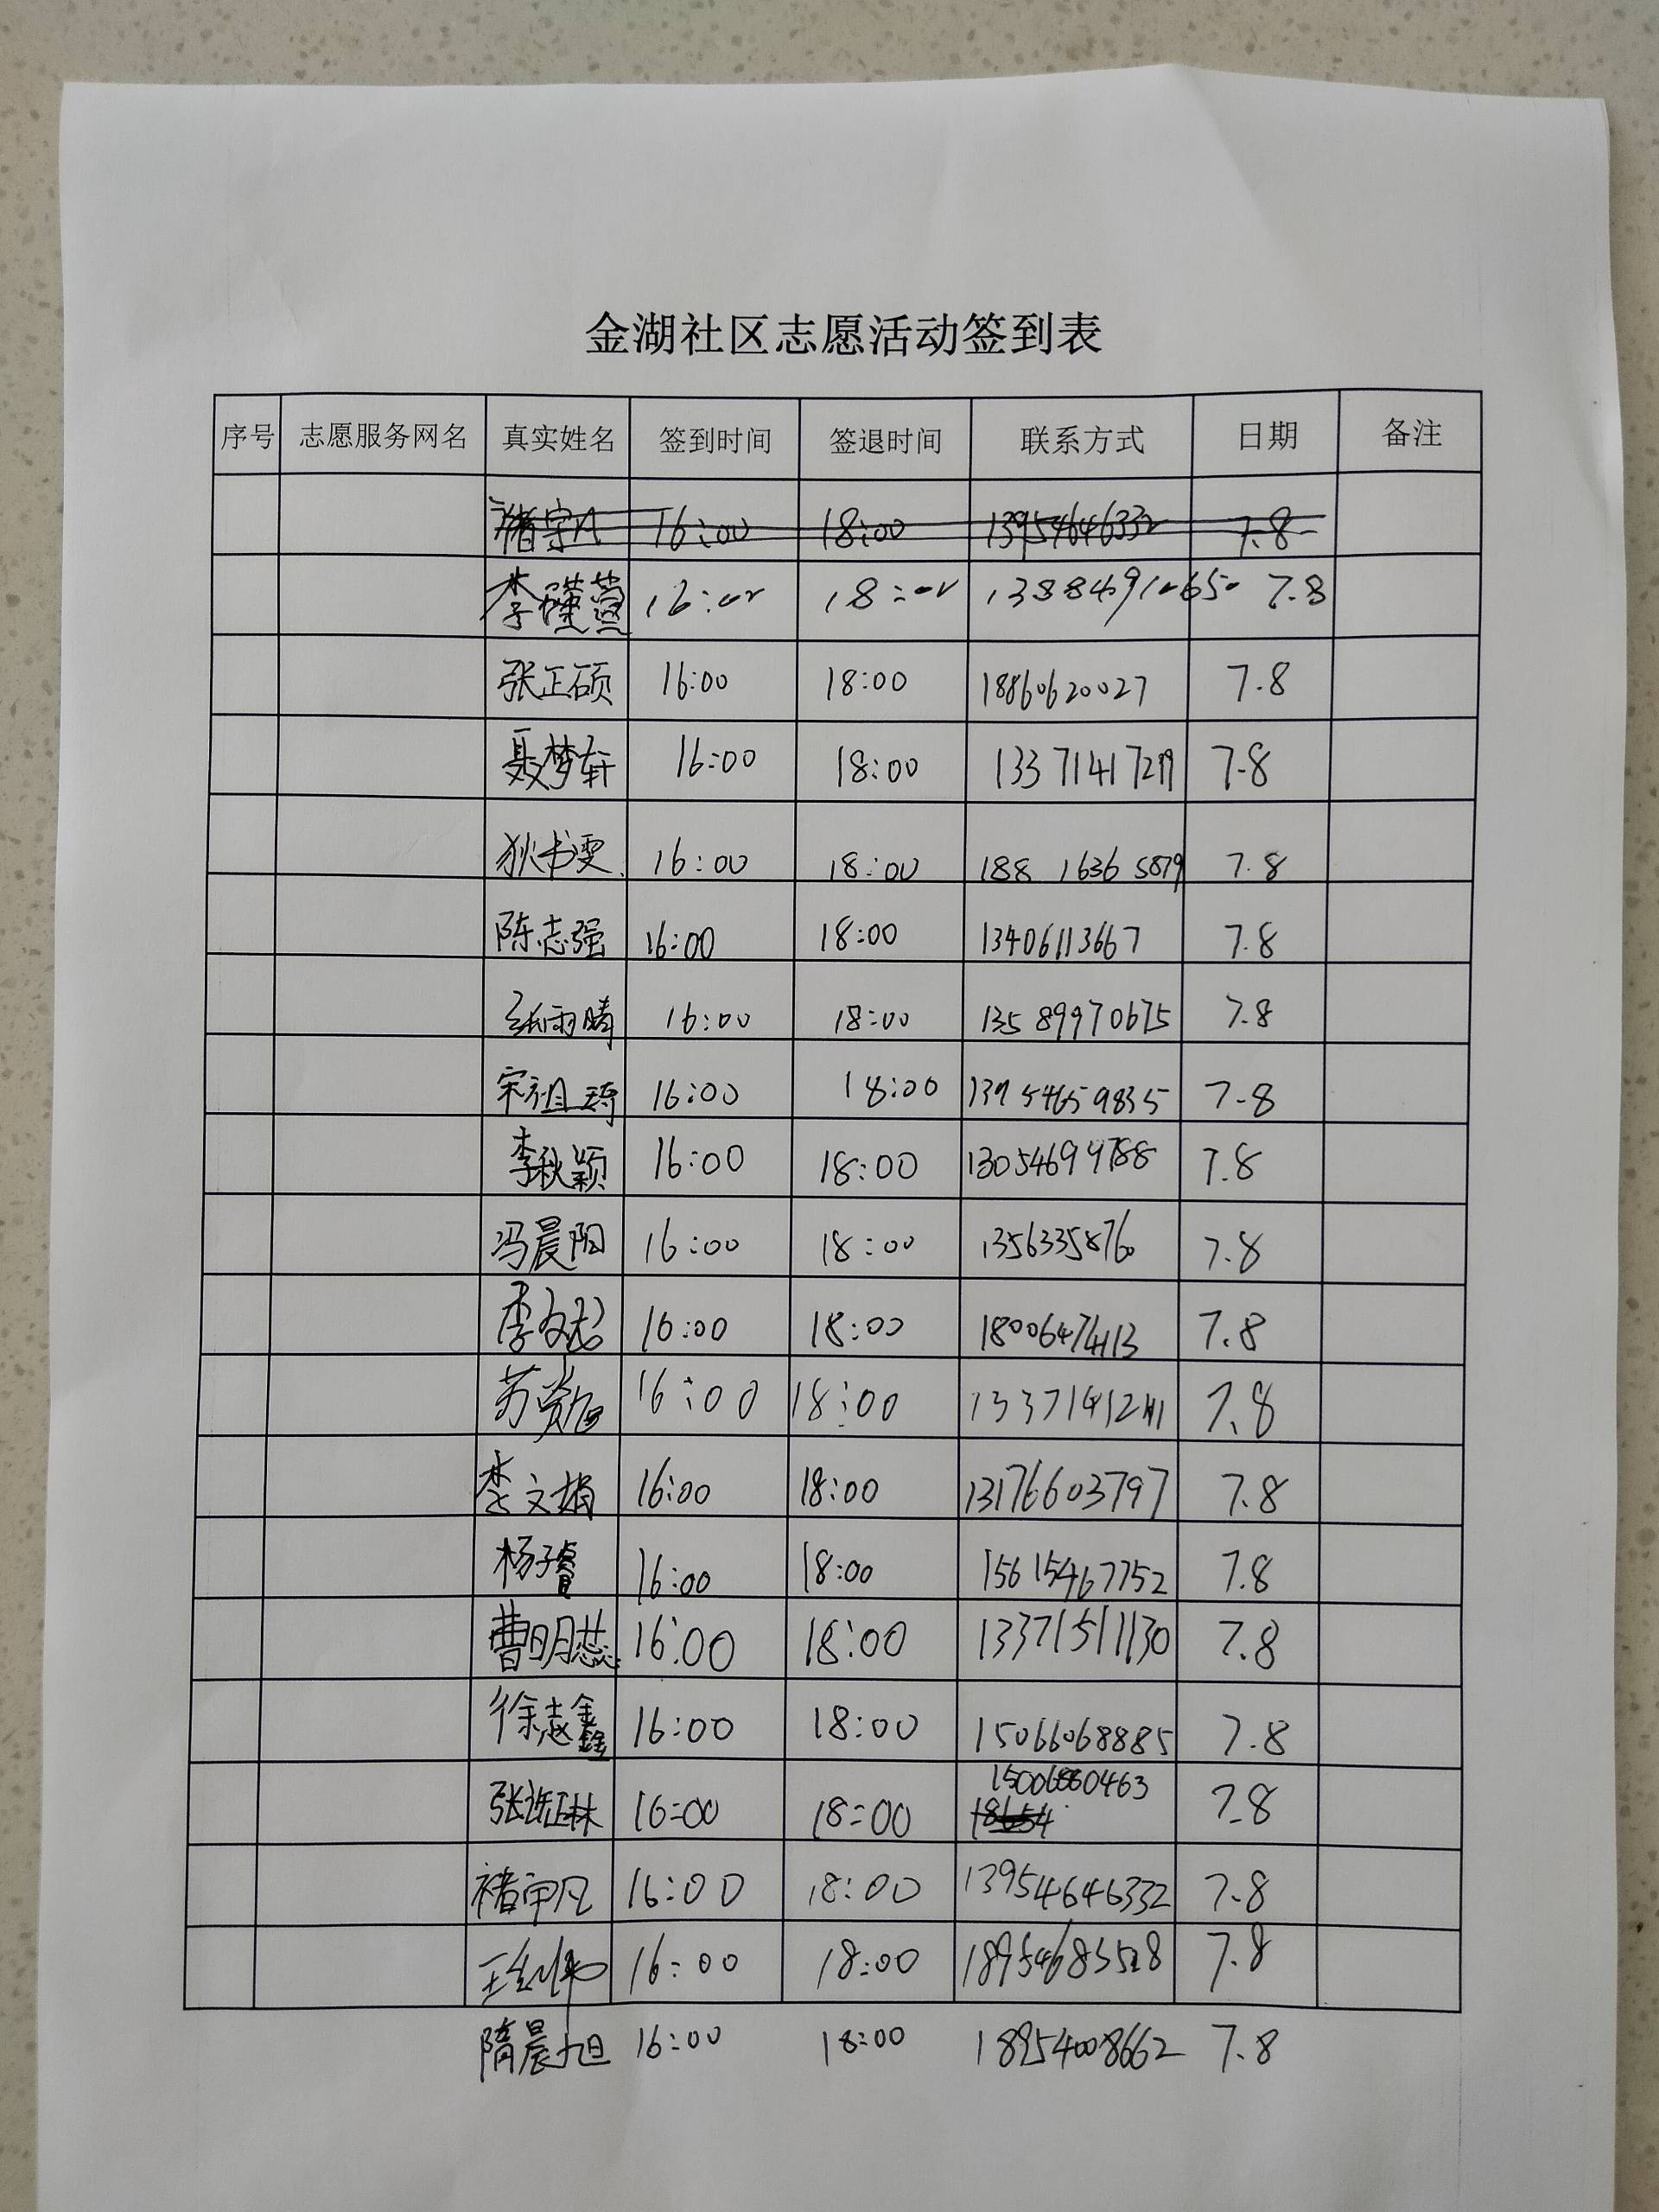 金湖社区志愿活动签到表
序号 志愿服务网名 真实姓名 签到时间 签退时间 联系方式 日期 备注
褚宇凡 16:00 18:00 13954646332 7.8
李瑾萱 16:00 18:00 13884910650 7.8
张正硕 16:00 18:00 18860620027 7.8
聂梦轩 16:00 18:00 7.8
狄书雯 16:00 18:00 188 1636 5879 7.8
陈志强 16:00 18:00 13406113667 7.8
张雨晴 16:00 18:00 13589970675 7.8
宋祖琦 16:00 18:00 7.8
李秋颖 16:00 18:00 7.8
冯晨阳 16:00 18:00 13563358760 7.8
16:00 18:00 18006474113 7.8
16:00 18:00 7.8
李文娟 16:00 18:00 13176603797 7.8
杨子睿 16:00 18:00 15615467752 7.8
曹明蕊 16:00 18:00 13371511130 7.8
徐志鑫 16:00 18:00 15066068885 7.8
16:00 18:00 7.8
褚宇凡 16:00 18:00 13954646332 7.8
16:00 18:00 7.8
隋晨旭 16:00 18:00 18954008662 7.8